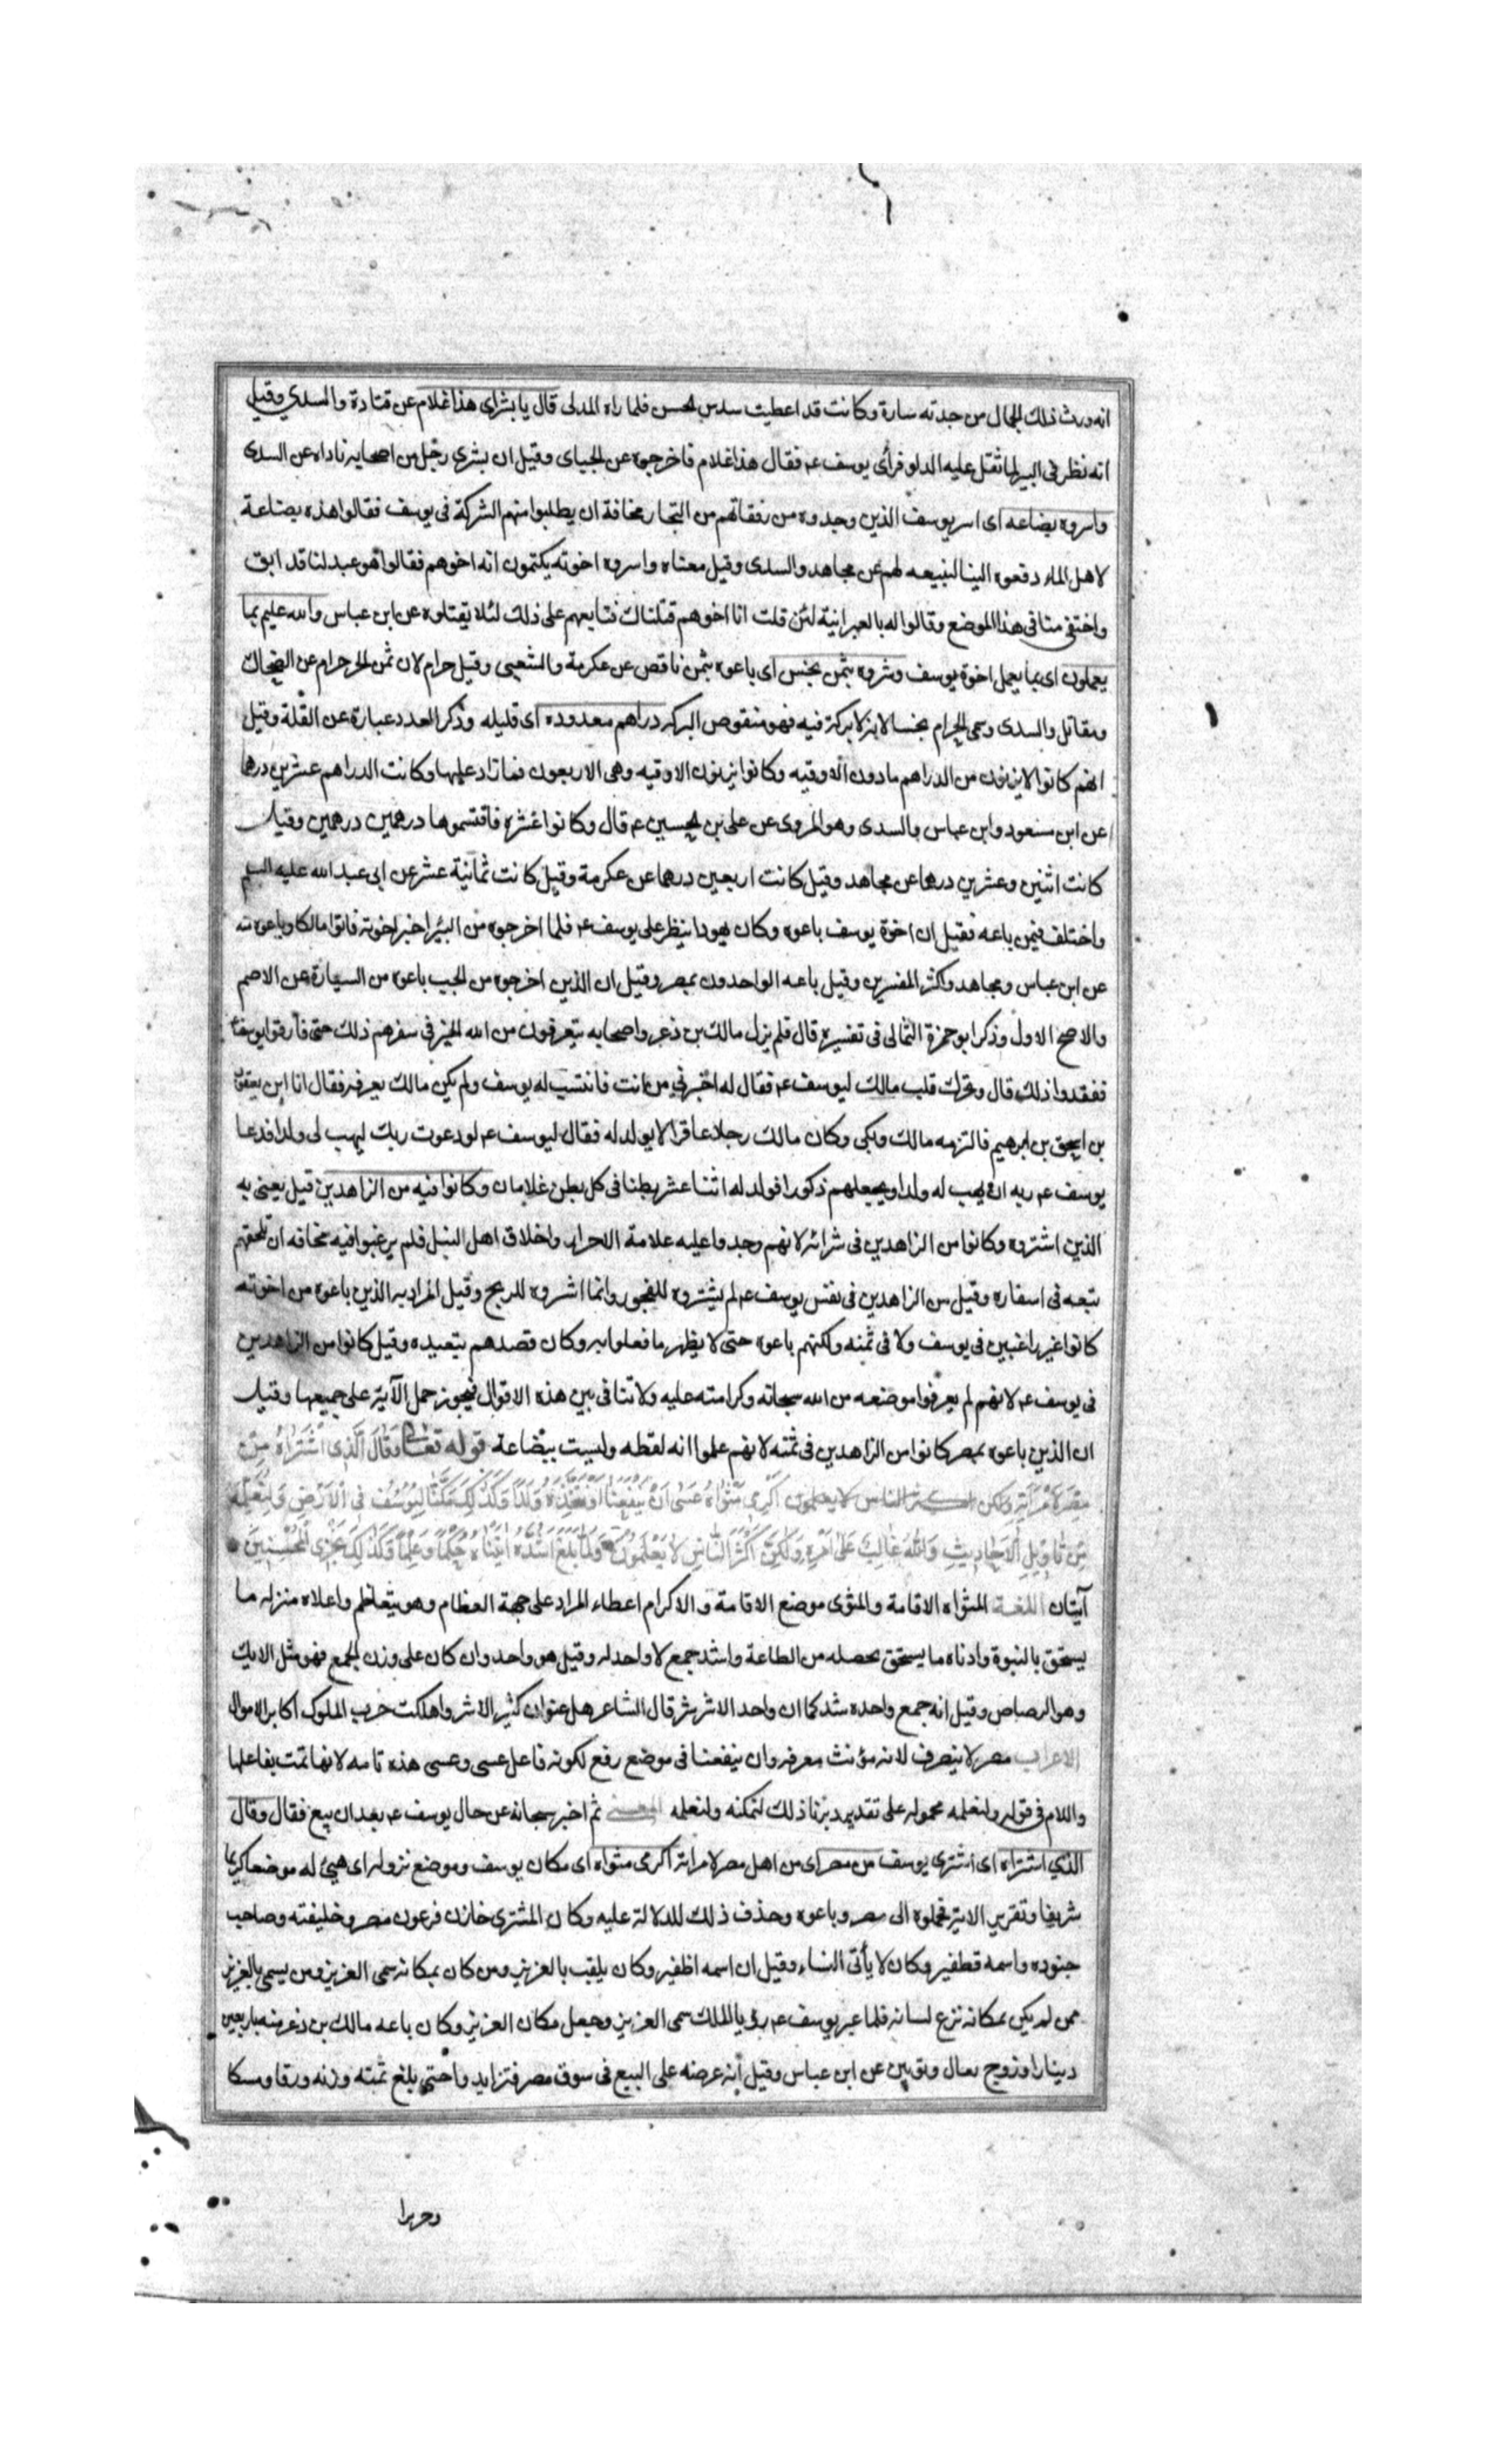 انه ورث ذلك الجمال من جدته سارة وكانت قد اعطيت سدس الحسن فلما راه المدلى قال يا بشراى هذا غلام عن قتادة والسدى وقيل
انه نظر فى البير لما ثقل عليه الدلو فرأى يوسف عم فقال هذا غلام فاخرجوه عن الجبائى وقيل ان بشرى رجل من اصحابه ناداه عن السدى
واسروه بضاعه اى اسر يوسف الذين وجدوه من رفقائهم من التجار مخافة ان يطلبوا منهم الشركة فى يوسف فقالوا هذه بضاعة
لاهل الماء دفعوه الينا لنبيعه لهم عن مجاهد والسدى وقيل معناه واسروه اخوته يكتمون انه اخوهم فقالوا هو عبد لنا قد ابق
واختفى منا فى هذا الموضع وقالوا له بالعبرانية لئن قلت انا اخوهم قتلناك فتابعهم على ذلك لئلا يقتلوه عن ابن عباس والله عليم بما
يعملون اى بما يعمل اخوة يوسف وشروه بثمن بخس اى باعوه بثمن ناقص عن عكرمة والشعبى وقيل حرام لان ثمن الحر حرام عن الضحاك
ومقاتل والسدى وسمى الحرام بخسا لانه لا بركة فيه فهو منقوص البركه دراهم معدوده اى قليله وذكر العدد عبارة عن القلة وقيل
انهم كانوا لا يزنون من الدراهم ما دون الاوقيه وكانوا يزنون الاوقيه وهى الاربعون فما زاد عليها وكانت الدراهم عشرين درهما
عن ابن مسعود وابن عباس والسدى وهو المروى عن على بن الحسين عم قال وكانوا عشره فاقتسموها درهمين درهمين وقيل
كانت اثنين وعشرين درهما عن مجاهد وقيل كانت اربعين درهما عن عكرمة وقيل كانت ثمانية عشر عن ابى عبد الله عليه السلم
واختلف فيمن باعه فقيل ان اخوة يوسف باعوه وكان يهودا ينظر على يوسف عم فلما اخرجوه من البئر اخبر اخوته فاتوا مالكا وباعوه منه
عن ابن عباس ومجاهد واكثر المفسرين وقيل باعه الواجدون بمصر وقيل ان الذين اخرجوه من الجب باعوه من السيارة عن الاصم
والاصح الاول وذكر ابو حمزة الثمالى فى تفسيره قال فلم يزل مالك بن ذعر واصحابه يتعرفون من الله الخير فى سفرهم ذلك حتى فارقوا يوسف
ففقدوا ذلك قال وتحرك قلب مالك ليوسف عم فقال له اخبرنى من انت فانتسب له يوسف ولم يكن مالك يعرفه فقال انا ابن يعقوب
بن اسحق بن ابرهيم فالتزمه مالك وبكى وكان مالك رجلا عاقرا لا يولد له فقال ليوسف عم لو دعوت ربك ليهب لى ولدا فدعا
يوسف عم ربه ان يهب له ولدا ويجعلهم ذكورا فولد له اثنا عشر بطنا فى كل بطن غلامان وكانوا فيه من الزاهدين قيل يعنى به
الذين اشتروه وكانوا من الزاهدين فى شرائه لانهم وجدوا عليه علامة الاحرار واخلاق اهل النبل فلم يرغبوا فيه مخافه ان تلحقهم
تبعه فى اسفاره وقيل من الزاهدين فى نفس يوسف عم لم يشتروه للفجور وانما اشتروه للربح وقيل المراد به الذين باعوه من اخوته
كانوا غير راغبين فى يوسف ولا فى ثمنه ولكنهم باعوه حتى لا يظهر ما فعلوا به وكان قصدهم تبعيده وقيل كانوا من الزاهدين
فى يوسف عم لانهم لم يعرفوا موضعه من الله سبحانه وكرامته عليه ولا تنافى بين هذه الاقوال فيجوز حمل الآية على جميعها وقيل
ان الذين باعوه بمصر كانوا من الزاهدين فى ثمنه لانهم علموا انه لقطه وليست ببضاعة قوله تعالى وَقَالَ الَّذِى اشْتَرَاهُ مِنْ
مِصْرَ لِامْرَأَتِهِ ولكن اكثر الناس لا يعلمون اَكْرِمِى مَثْوَاهُ عَسَى اَنْ يَنْفَعَنَا اَوْ نَتَّخِذَهُ وَلَدًا وَكَذَلِكَ مَكَّنَّا لِيُوسُفَ فِى الْاَرْضِ وَلِنُعَلِّمَهُ
مِنْ تَاْوِيلِ الْاَحَادِيثِ وَاللَّهُ غَالِبٌ عَلَى اَمْرِهِ وَلَكِنَّ اَكْثَرَ النَّاسِ لَا يَعْلَمُونَ وَلَمَّا بَلَغَ اَشُدَّهُ اتَيْنَاهُ حُكْمًا وَعِلْمًا وَكَذَلِكَ نَجْزِى الْمُحْسِنِينَ
آيتان اللغة المثواه الاقامة والمثوى موضع الاقامة والاكرام اعطاء المراد على جهة العظام وهو يتعاظم واعلاه منزله ما
يستحق بالنبوة وادناه ما يستحق بحصله من الطاعة واشد جمع لا واحد له وقيل هو واحد وان كان على وزن الجمع فهو مثل الانك
وهو الرصاص وقيل انه جمع واحده شد كما ان واحد الاشر شر قال الشاعر هل عنوان كثير الاشر واهلكت حرب الملوك اكابر الاموال
الاعراب مصر لا ينصرف لانه مؤنث معرفه وان ينفعنا فى موضع رفع لكونه فاعل عسى وعسى هذه تامه لانها تمت بفاعلها
واللام فى قوله ولنعلمه محموله على تقدير دبرنا ذلك لنمكنه ولنعلمه المعنى ثم اخبر سبحانه عن حال يوسف عم بعد ان بيع فقال وقال
الذي اشتراه اى اشترى يوسف من مصر اى من اهل مصر لامراته اكرمى مثواه اى مكان يوسف وموضع نزوله اى هيئ له موضعا كريما
شريفا وتقرير الايه فحملوه الى مصر وباعوه وحذف ذلك للدلالة عليه وكان المشترى خازن فرعون مصر وخليفته وصاحب
جنوده واسمه قطفير وكان لا يأتى النساء وقيل ان اسمه اظفير وكان يلقب بالعزيز ومن كان بمكانه سمى العزيز ومن يسمى بالعزيز
ممن لم يكن بمكانه نزع لسانه فلما عبر يوسف عم رؤيا الملك سمى العزيز وجعل مكان العزيز وكان باعه مالك بن ذعر منه باربعين
دينارا وزوج نعال وثوبين عن ابن عباس وقيل انه عرضه على البيع فى سوق مصر فتزايدوا حتى بلغ ثمنه وزنه ورقا ومسكا
وحريرا